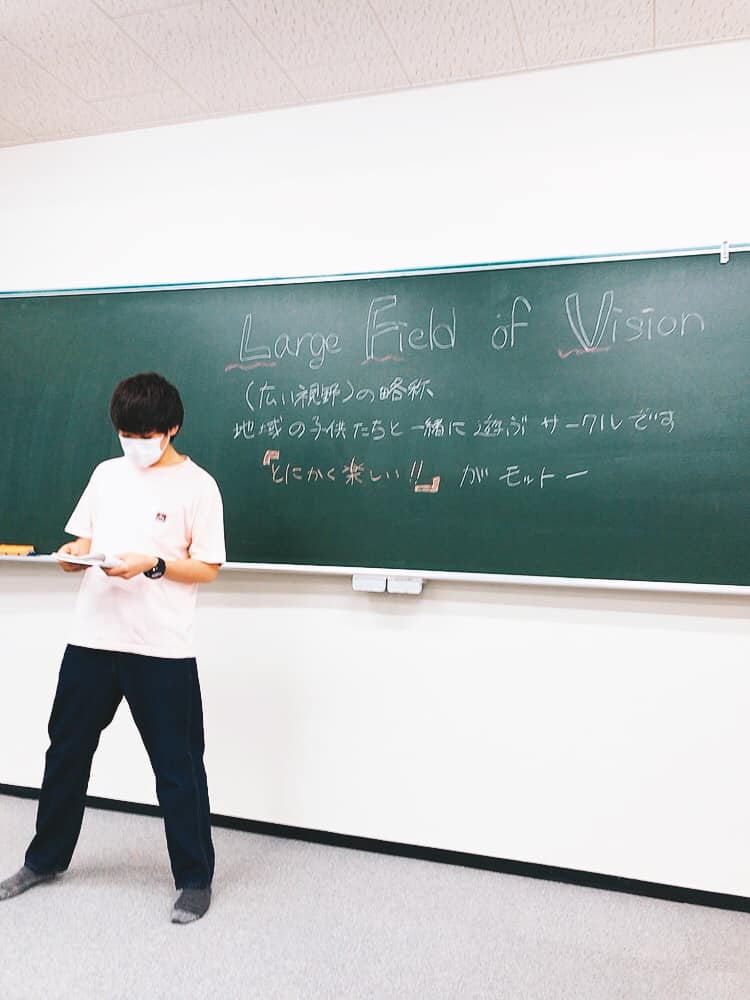 Large Field of Vision
(広い視野)の略称
地域の子供たちと一緒に遊ぶサークルです
『とにかく楽しい!!』がモットー